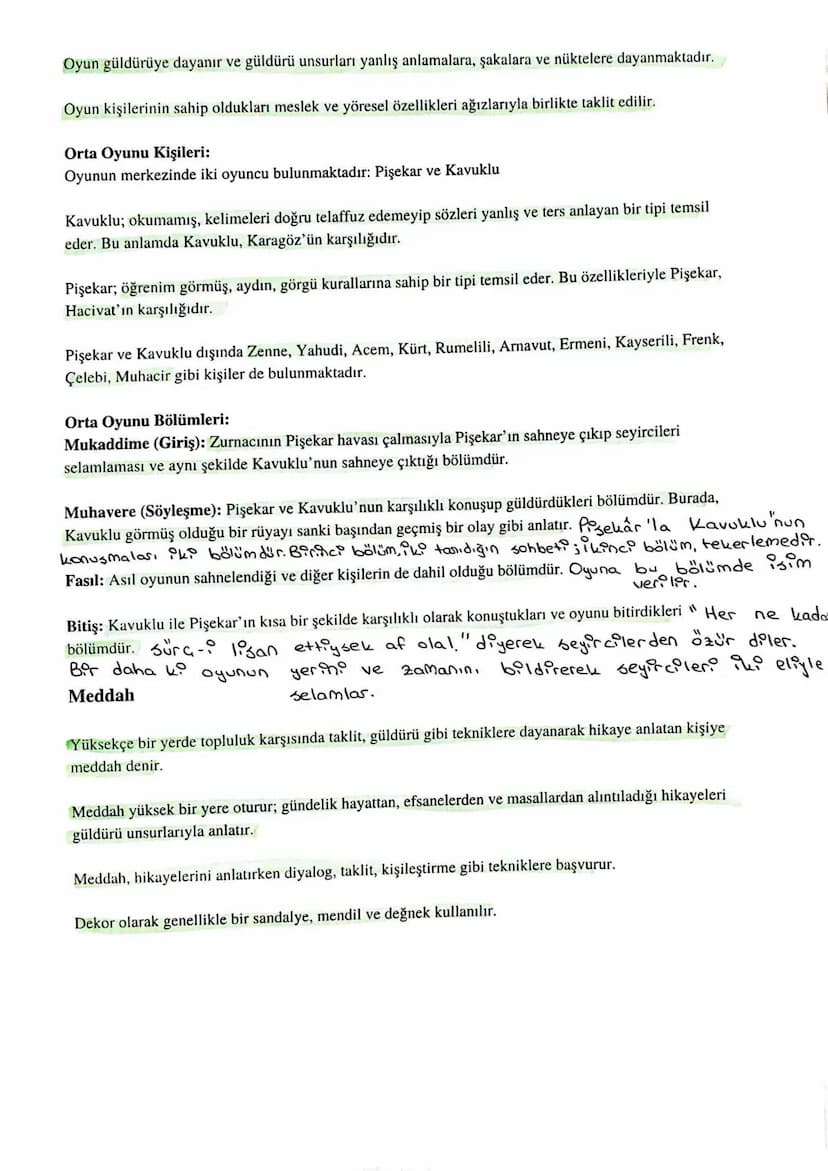 Oyun güldürüye dayanır ve güldürü unsurları yanlış anlamalara, şakalara ve nüktelere dayanmaktadır.
Oyun kişilerinin sahip oldukları meslek ve yöresel özellikleri ağızlarıyla birlikte taklit edilir.
Orta Oyunu Kişileri:
Oyunun merkezinde iki oyuncu bulunmaktadır: Pişekar ve Kavuklu
Kavuklu; okumamış, kelimeleri doğru telaffuz edemeyip sözleri yanlış ve ters anlayan bir tipi temsil
eder. Bu anlamda Kavuklu, Karagöz’ün karşılığıdır.
Pişekar; öğrenim görmüş, aydın, görgü kurallarına sahip bir tipi temsil eder. Bu özellikleriyle Pişekar,
Hacivat’ın karşılığıdır.
Pişekar ve Kavuklu dışında Zenne, Yahudi, Acem, Kürt, Rumelili, Arnavut, Ermeni, Kayserili, Frenk,
Çelebi, Muhacir gibi kişiler de bulunmaktadır.
Orta Oyunu Bölümleri:
Mukaddime (Giriş): Zurnacının Pişekar havası çalmasıyla Pişekar’ın sahneye çıkıp seyircileri
selamlaması ve aynı şekilde Kavuklu’nun sahneye çıktığı bölümdür.
Muhavere (Söyleşme): Pişekar ve Kavuklu’nun karşılıklı konuşup güldürdükleri bölümdür. Burada,
Kavuklu görmüş olduğu bir rüyayı sanki başından geçmiş bir olay gibi anlatır. Pişekâr'la Kavuklu"nun
konuşmaları iki bölümdür. Birinci bölüm, iki tanıdığın sohbeti; ikinci bölüm, tekerlemedir.
Fasıl: Asıl oyunun sahnelendiği ve diğer kişilerin de dahil olduğu bölümdür. Oyuna bu bölümde isim
verilir.
Bitiş: Kavuklu ile Pişekar’ın kısa bir şekilde karşılıklı olarak konuştukları ve oyunu bitirdikleri " Her ne kada
bölümdür. sürc-i lisan ettiysek af olal." diyerek seyircilerden özür diler.
Bir daha ki oyunun yerini ve zamanını bildirerek seyircileri iki eliyle
Meddah selamlar.
Yüksekçe bir yerde topluluk karşısında taklit, güldürü gibi tekniklere dayanarak hikaye anlatan kişiye
meddah denir.
Meddah yüksek bir yere oturur; gündelik hayattan, efsanelerden ve masallardan alıntıladığı hikayeleri
güldürü unsurlarıyla anlatır.
Meddah, hikayelerini anlatırken diyalog, taklit, kişileştirme gibi tekniklere başvurur.
Dekor olarak genellikle bir sandalye, mendil ve değnek kullanılır.